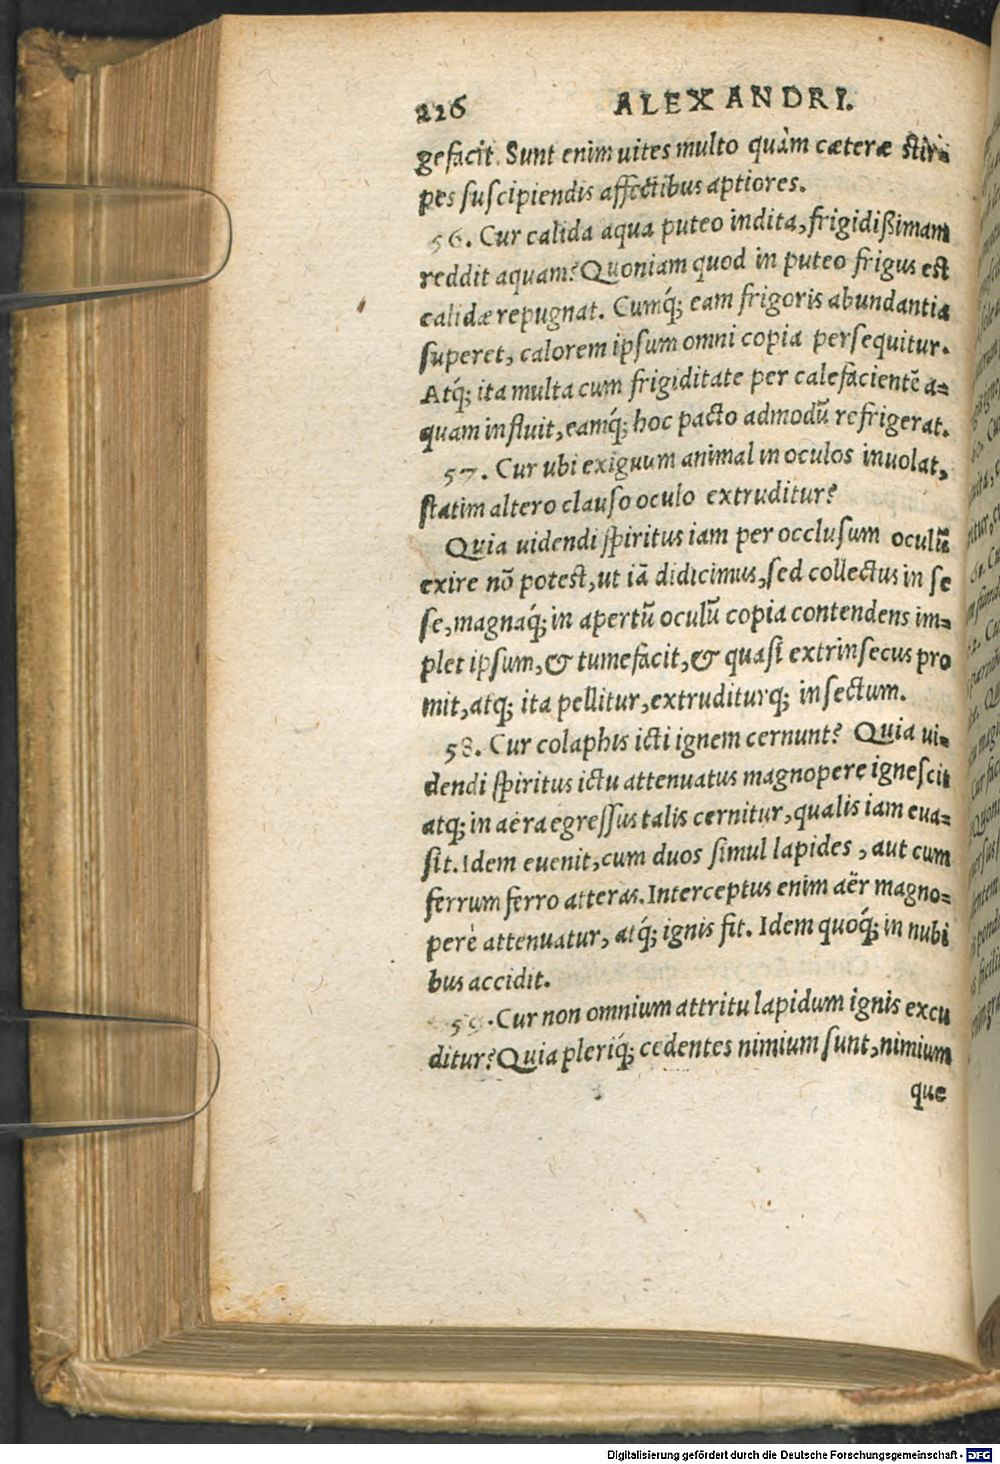 226 ALEXANDRI.
gefacit. Sunt enim uites multo quàm cæteræ stir=
pes suscipiendis affectibus aptiores.
56. Cur calida aqua puteo indita, frigidißimam
reddit aquam? Quoniam quod in puteo frigus est
calidæ repugnat. Cumq́; eam frigoris abundantia
superet, calorem ipsum omni copia persequitur.
Atq́; ita multa cum frigiditate per calefacientē a=
quam influit, eamq́; hoc pacto admodū refrigerat.
57. Cur ubi exiguum animal in oculos inuolat,
statim altero clauso oculo extruditur?
Quia uidendi spiritus iam per occlusum oculū
exire nō potest, ut iā didicimus, sed collectus in se
se, magnaq́; in apertū oculū copia contendens im=
plet ipsum, & tumefacit, & quasi extrinsecus pro
mit, atq; ita pellitur, extruditurq; insectum.
58. Cur colaphis icti ignem cernunt? Quia ui=
dendi spiritus ictu attenuatus magnopere ignescit
atq; in aëra egressus talis cernitur, qualis iam eua=
sit. Idem euenit, cum duos simul lapides, aut cum
ferrum ferro atteras. Interceptus enim aër magno=
perè attenuatur, atq́; ignis fit. Idem quoq́; in nubi
bus accidit.
59. Cur non omnium attritu lapidum ignis excu
ditur? Quia pleriq́; cedentes nimium sunt, nimium
que
Digitalisierung gefördert durch die Deutsche Forschungsgemeinschaft - DFG